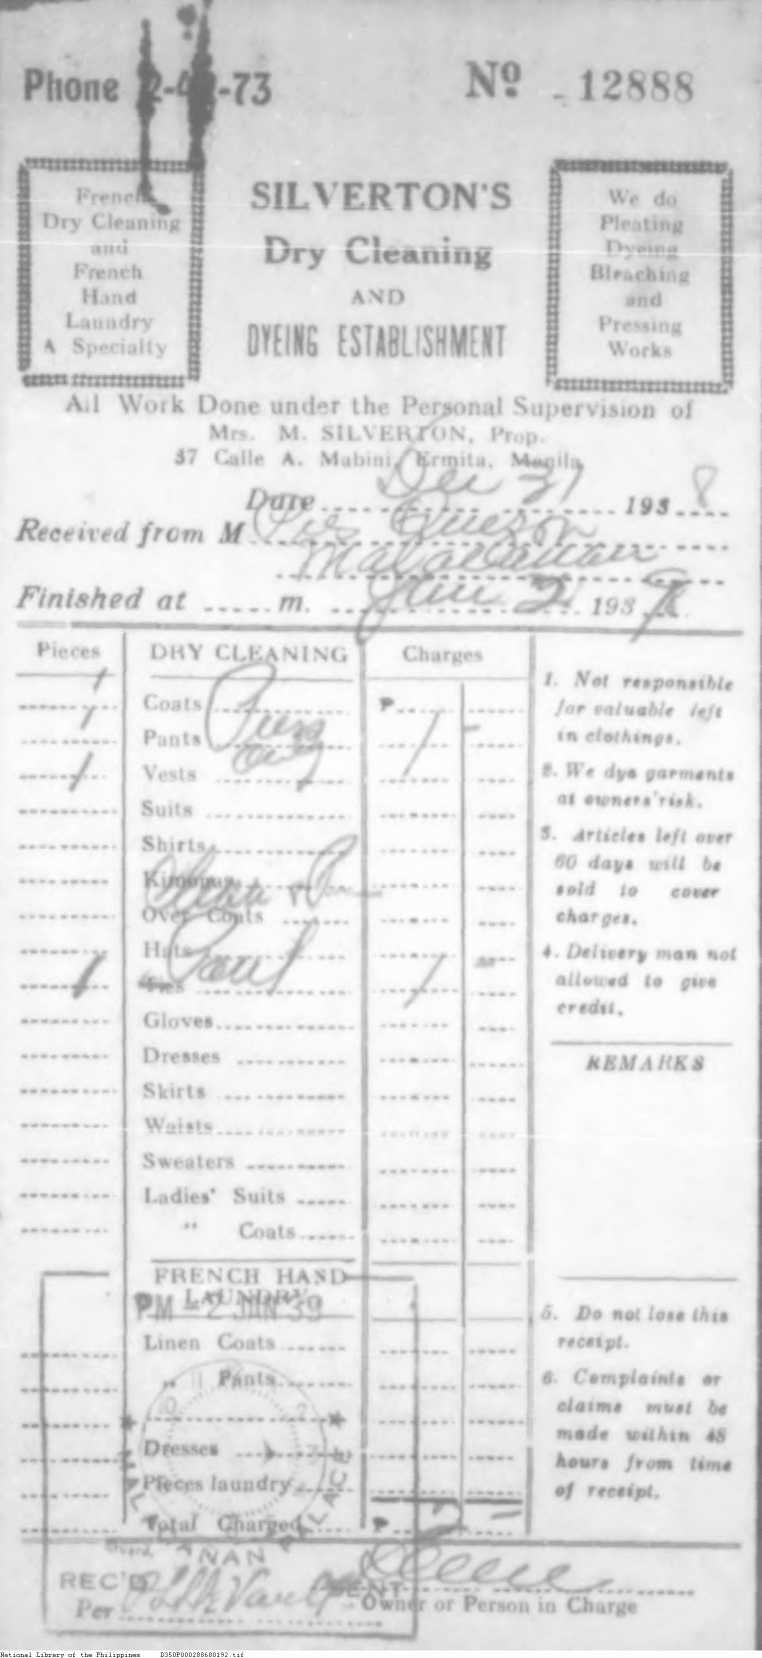 Phone 2-4-73
Nº 12888
French
Dry Cleaning
and
French
Hand
Laundry
A Specialty
SILVERTON'S
Dry Cleaning
AND
DYEING ESTABLISHMENT
We do
Pleating
Dyeing
Bleaching
and
Pressing
Works
All Work Done under the Personal Supervision of
Mrs. M. SILVERTON, Prop.
37 Calle A. Mabini, Ermita, Manila
Date Dec 31 1938
Received from Mrs Quezon
Malacanan
Finished at m. Jan 2 193
Pieces
DRY CLEANING
Charges
1
Coats
₱
1
Pants
1 -
1
Vests
Suits
Shirts
Kimonus
Over Coats
Hats
Coat
1
Ties
1
Gloves
Dresses
Skirts
Waists
Sweaters
Ladies' Suits
" Coats
FRENCH HAND
LAUNDRY
PM - 2 JAN 39
Linen Coats
" Pants
Dresses
Pieces laundry
Total Charged ₱ 2 -
1. Not responsible
for valuable left
in clothings.
2. We dye garments
at owners' risk.
3. Articles left over
60 days will be
sold to cover
charges.
4. Delivery man not
allowed to give
credit.
REMARKS
5. Do not lose this
receipt.
6. Complaints or
claims must be
made within 48
hours from time
of receipt.
PALACE
REC'D
SENT
Per
Owner or Person in Charge
National Library of the Philippines D350P000288680192.tif